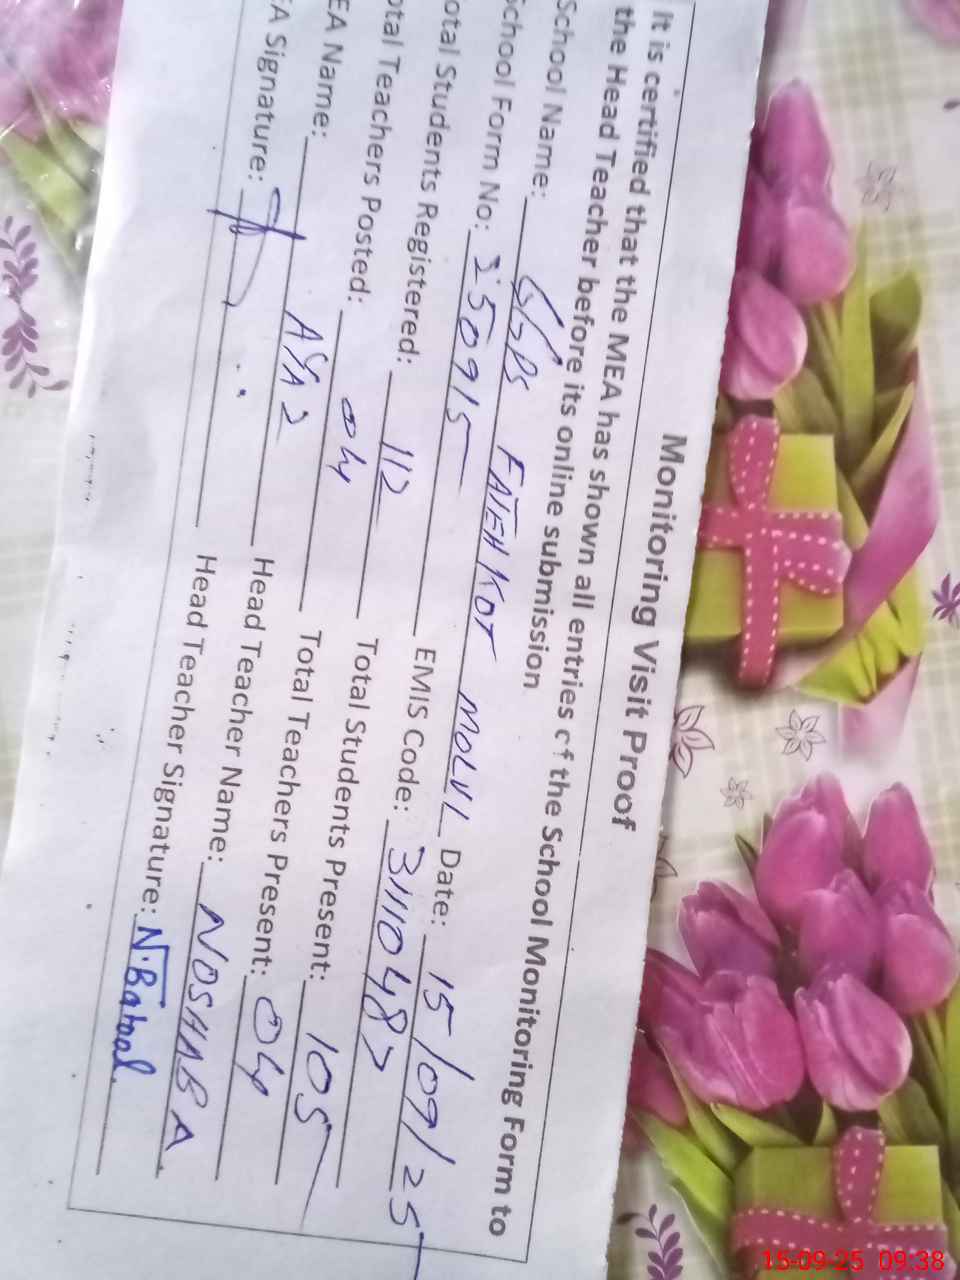 Monitoring Visit Proof
It is certified that the MEA has shown all entries of the School Monitoring Form to
the Head Teacher before its online submission
School Name: GGPS FATEH KOT MOLVI Date: 15/09/25
School Form No: 250915 EMIS Code: 31110487
otal Students Registered: 112 Total Students Present: 105
otal Teachers Posted: 04 Total Teachers Present: 04
EA Name: Head Teacher Name: NOSHABA
EA Signature: Head Teacher Signature: N.Batool
15-09-25 09:38